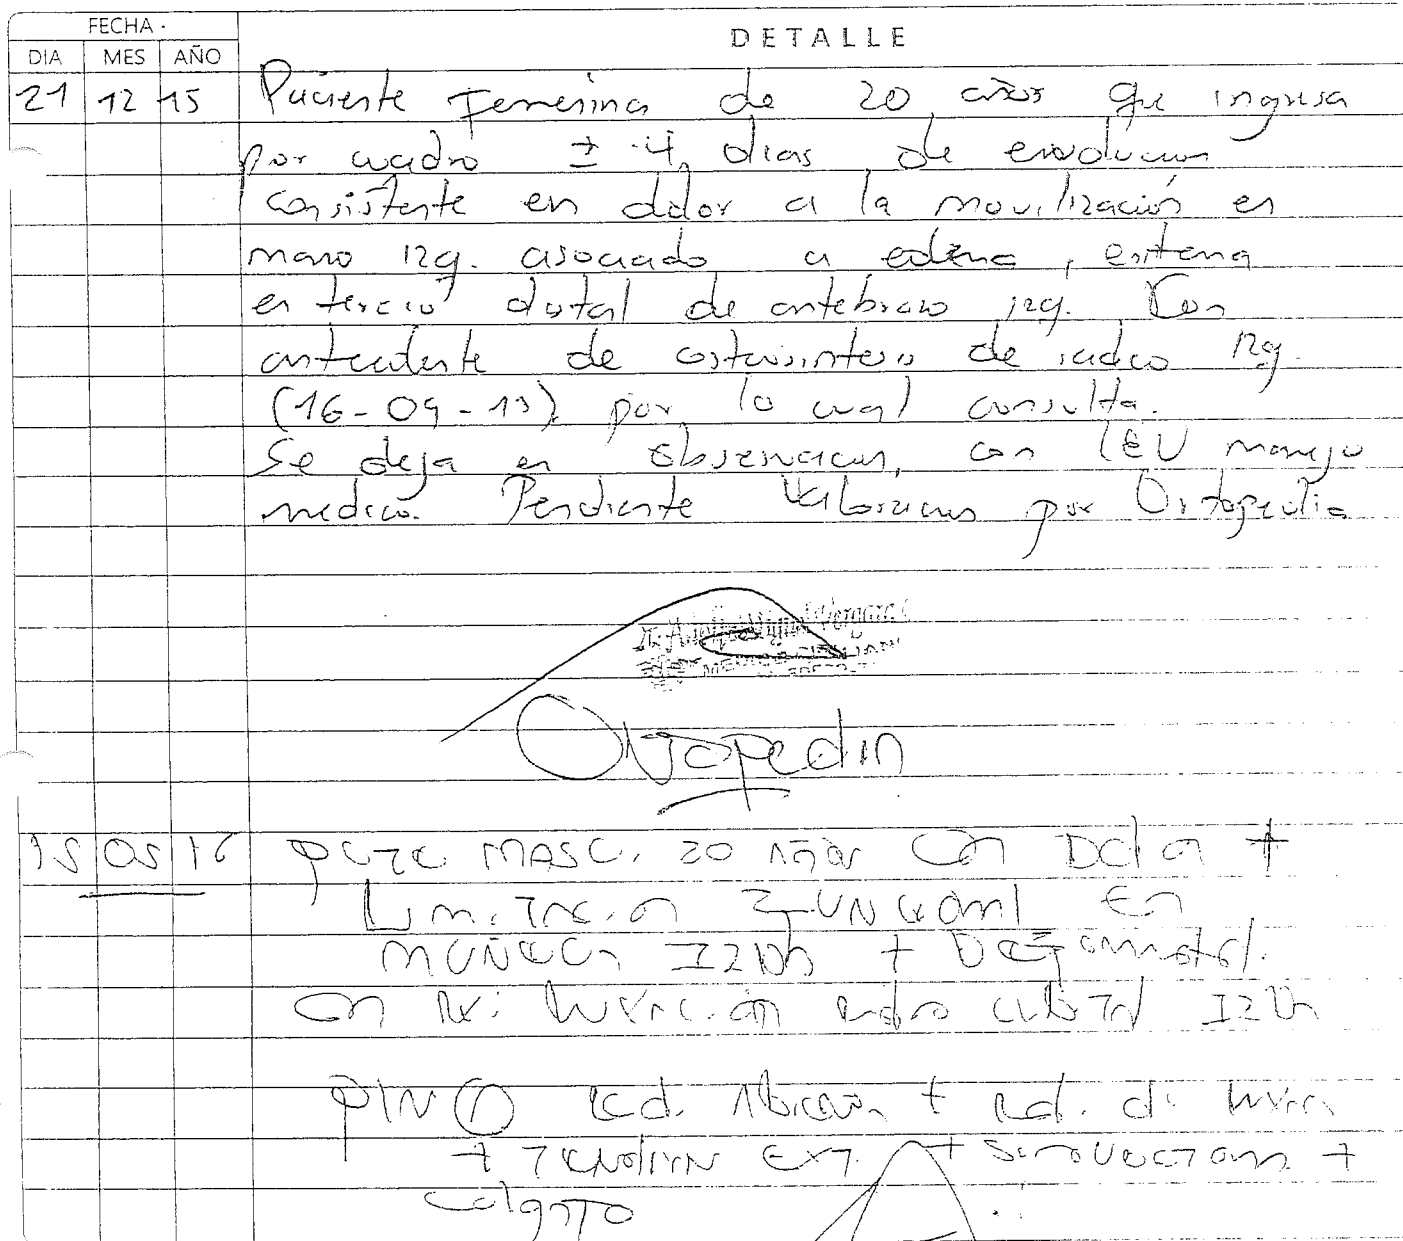 FECHA
DETALLE
DIA MES AÑO
21 12 15 Paciente Femenina de 20 años que ingresa
por cuadro ± 4 dias de evolucion
consistente en dolor a la movilización en
mano izq. asociado a edema, eritema
en tercio distal de antebrazo izq. Con
antecedente de osteosintesis de radio izq.
(16-09-13) por lo cual consulta.
Se deja en observacion, con LEV manejo
medico. Pendiente Valoracion por Ortopedia
Dr. Miguel Vergara
Ortopedia
15 05 16 MASC. 20 Años con Dolor +
Limitacion Funcional en
MUÑECA IZDA +
con Rx: luxación radio cubital IZDA
PLAN red. Abierta + red. de luxn
+ EXT. + Sinovectomia +